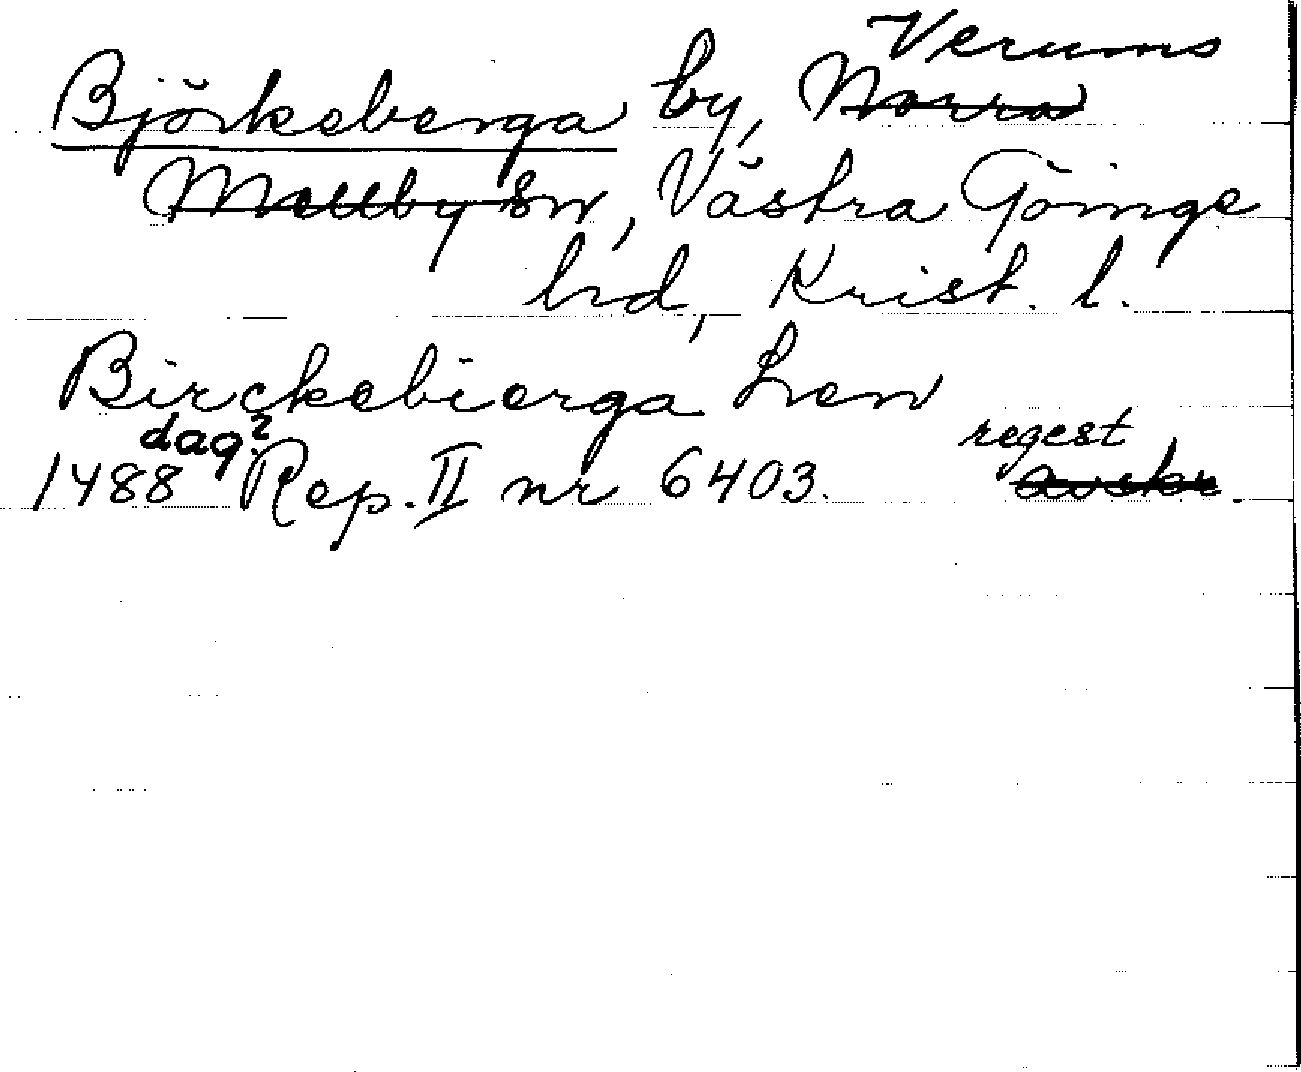 Verums
Björkeberga by, Norra
Mellby sn, Västra Göinge
hrd, Krist. l.
Birckebierga Len
dag? regest
1488 Rep. II nr 6403. avskr.